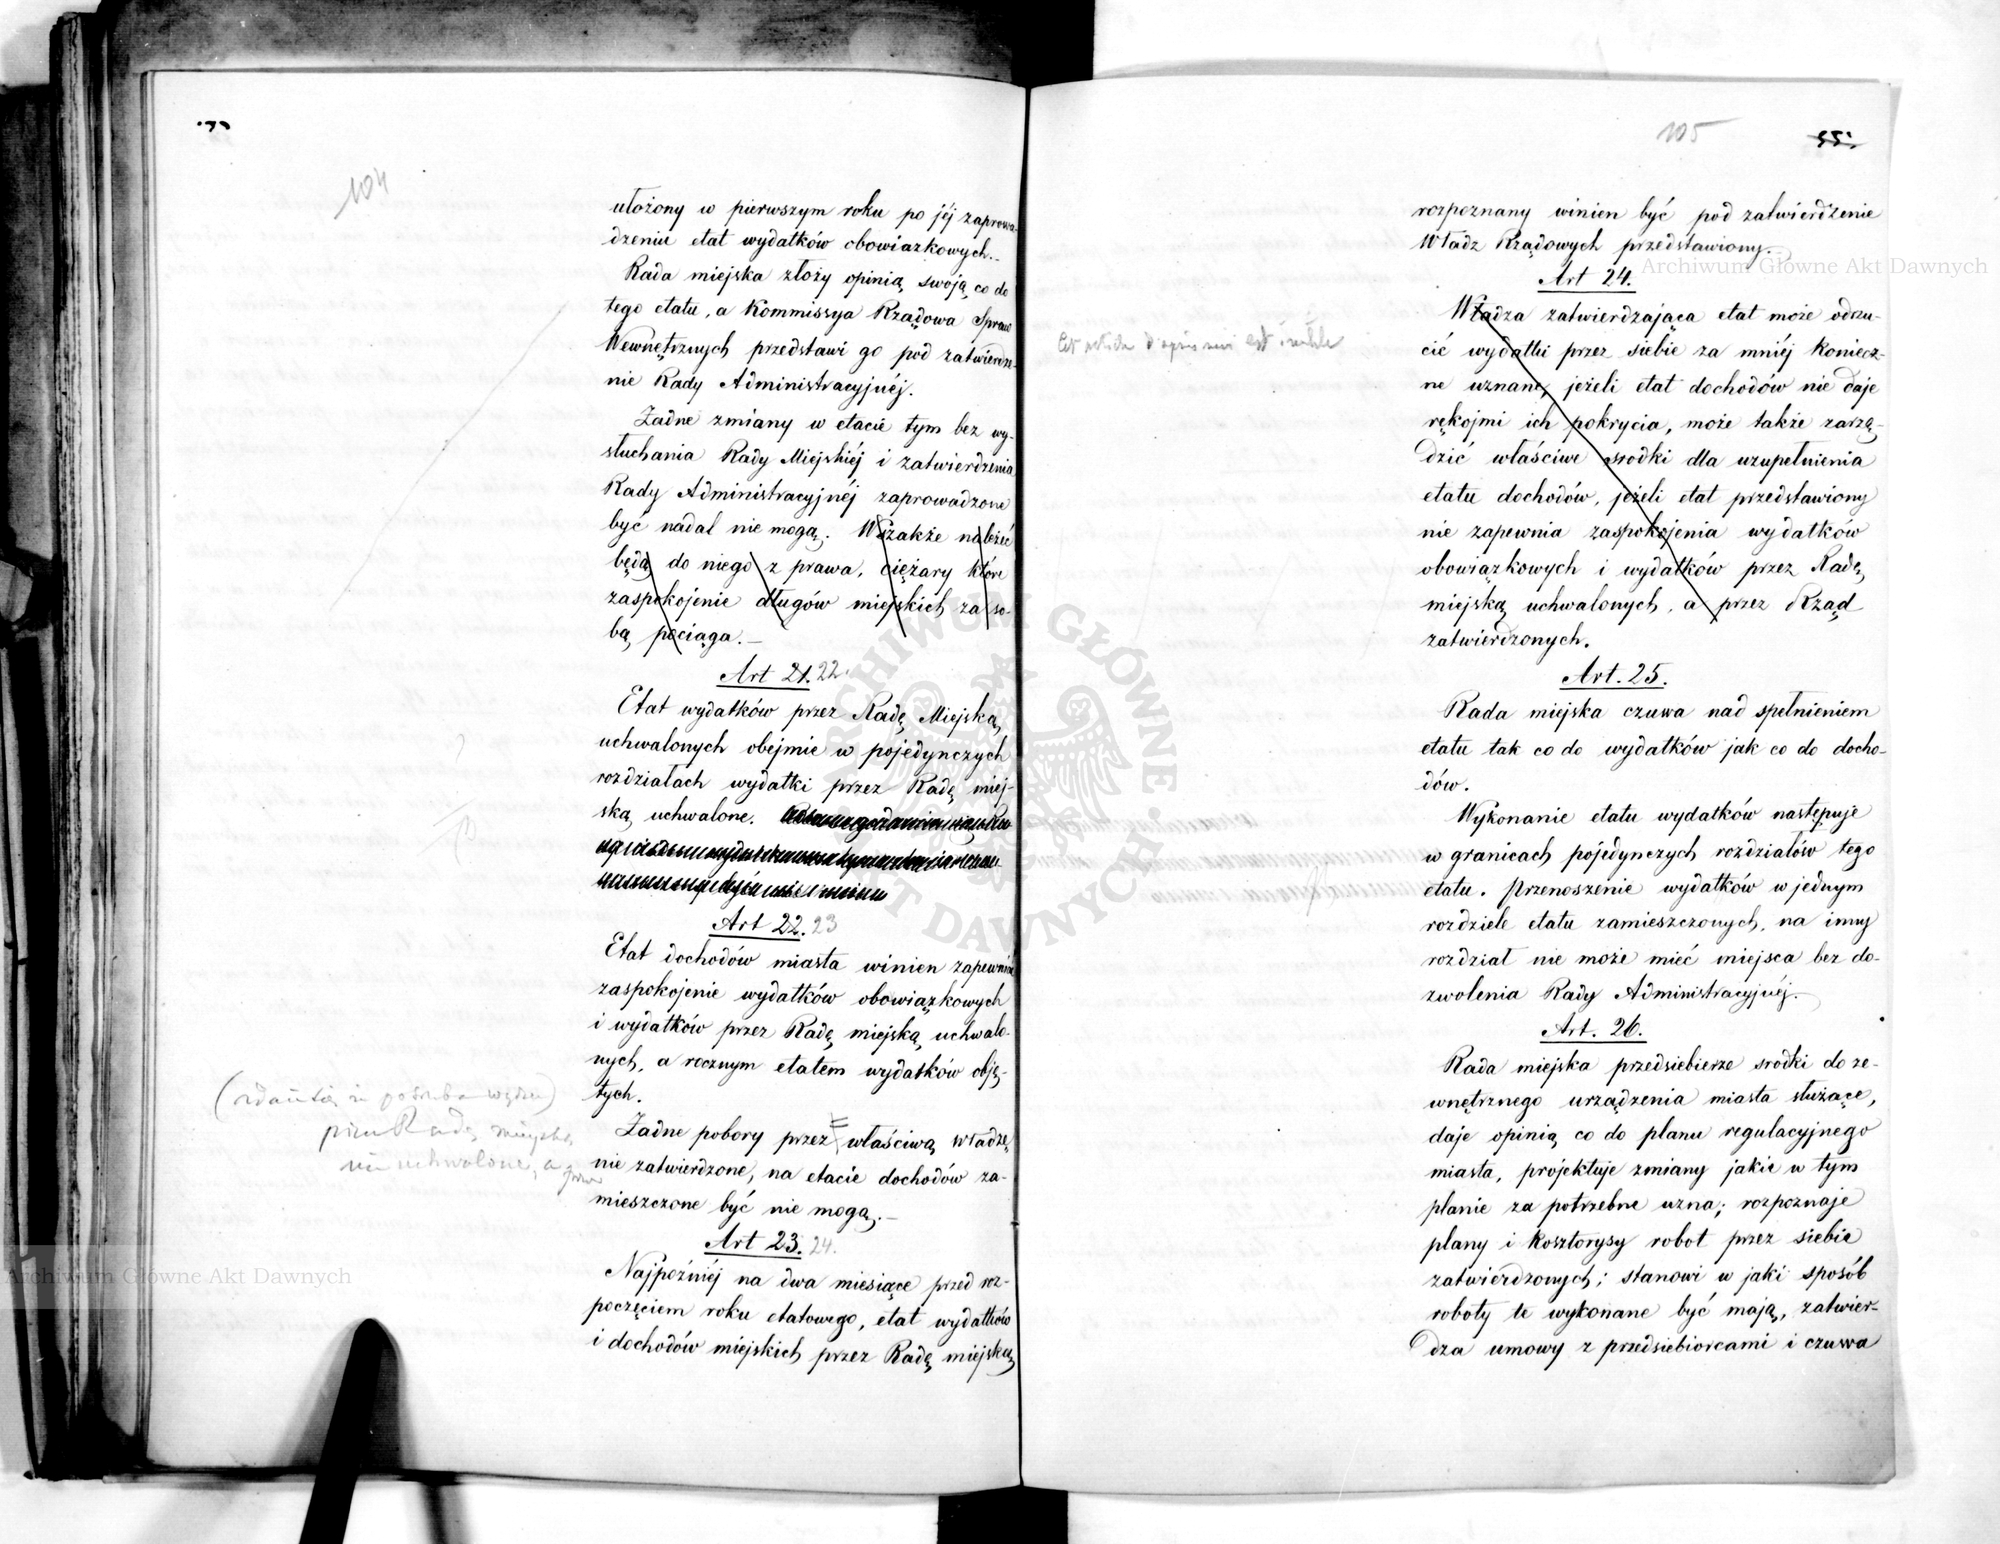 104
ułożony w pierwszym roku po jéj zaprowa-
dzeniu etat wydatków obowiazkowych.
Rada miejska złoży opinią swoją co do
tego etatu, a Kommissya Rządowa Spraw
Wewnętrznych przedstawi go pod zatwierdze-
nie Rady Administracyjnéj.
Żadne zmiany w etacie tym bez wy-
słuchania Rady Miejskiéj i zatwierdzenia
Rady Administracyjnéj zaprowadzone
być nadal nie mogą. Wszakże należéć
będą do niego z prawa, ciężary które
zaspokojenie długów miejskich za so-
bą pociąga.—
Art 21. 22.
Etat wydatków przez Radę Miejską
uchwalonych obejmie w pojedynczych
rozdziałach wydatki przez Radę miej-
ską uchwalone.
Art 22. 23
Etat dochodów miasta winien zapewnić
zaspokojenie wydatków obowiązkowych
i wydatków przez Radę miejską uchwalo-
nych, a rocznym etatem wydatków obję-
tych.
Żadne pobory przez właściwą władzę
nie zatwierdzone, na etacie dochodów za-
mieszczone być nie mogą.—
przez Radę miejską
nie uchwalone, a przez
Art 23. 24.
Najpoźniéj na dwa miesiące przed roz-
poczęciem roku etatowego, etat wydatków
i dochodów miejskich przez Radę miejską
105
55.
rozpoznany winien być pod zatwierdzenie
Władz Rządowych przedstawiony.
Art 24.
Władza zatwierdzająca etat może odrzu-
cić wydatki przez siebie za mniéj koniecz-
ne uznane, jeżeli etat dochodów nie daje
rękojmi ich pokrycia, może także zarzą-
dzić właściwe srodki dla uzupełnienia
etatu dochodów, jeżeli etat przedstawiony
nie zapewnia zaspokojenia wydatków
obowiązkowych i wydatków przez Radę
miejską uchwalonych, a przez Rząd
zatwierdzonych.
Art. 25.
Rada miejska czuwa nad spełnieniem
etatu tak co do wydatków jak co do docho-
dów.
Wykonanie etatu wydatków następuje
w granicach pojedynczych rozdziałów tego
etatu. Przenoszenie wydatków w jednym
rozdziele etatu zamieszczonych, na inny
rozdział nie może mieć miejsca bez do-
zwolenia Rady Administracyjnéj.
Art. 26.
Rada miejska przedsiebierze srodki do ze-
wnętrznego urządzenia miasta służące,
daje opinią co do planu regulacyjnego
miasta, projektuje zmiany jakie w tym
planie za potrzebne uzna; rozpoznaje
plany i kosztorysy robot przez siebie
zatwierdzonych; stanowi w jaki sposób
roboty te wykonane być mają, zatwier-
dza umowy z przedsiebiorcami i czuwa
Archiwum Główne Akt Dawnych
ARCHIWUM GŁÓWNE AKT DAWNYCH
Archiwum Główne Akt Dawnych